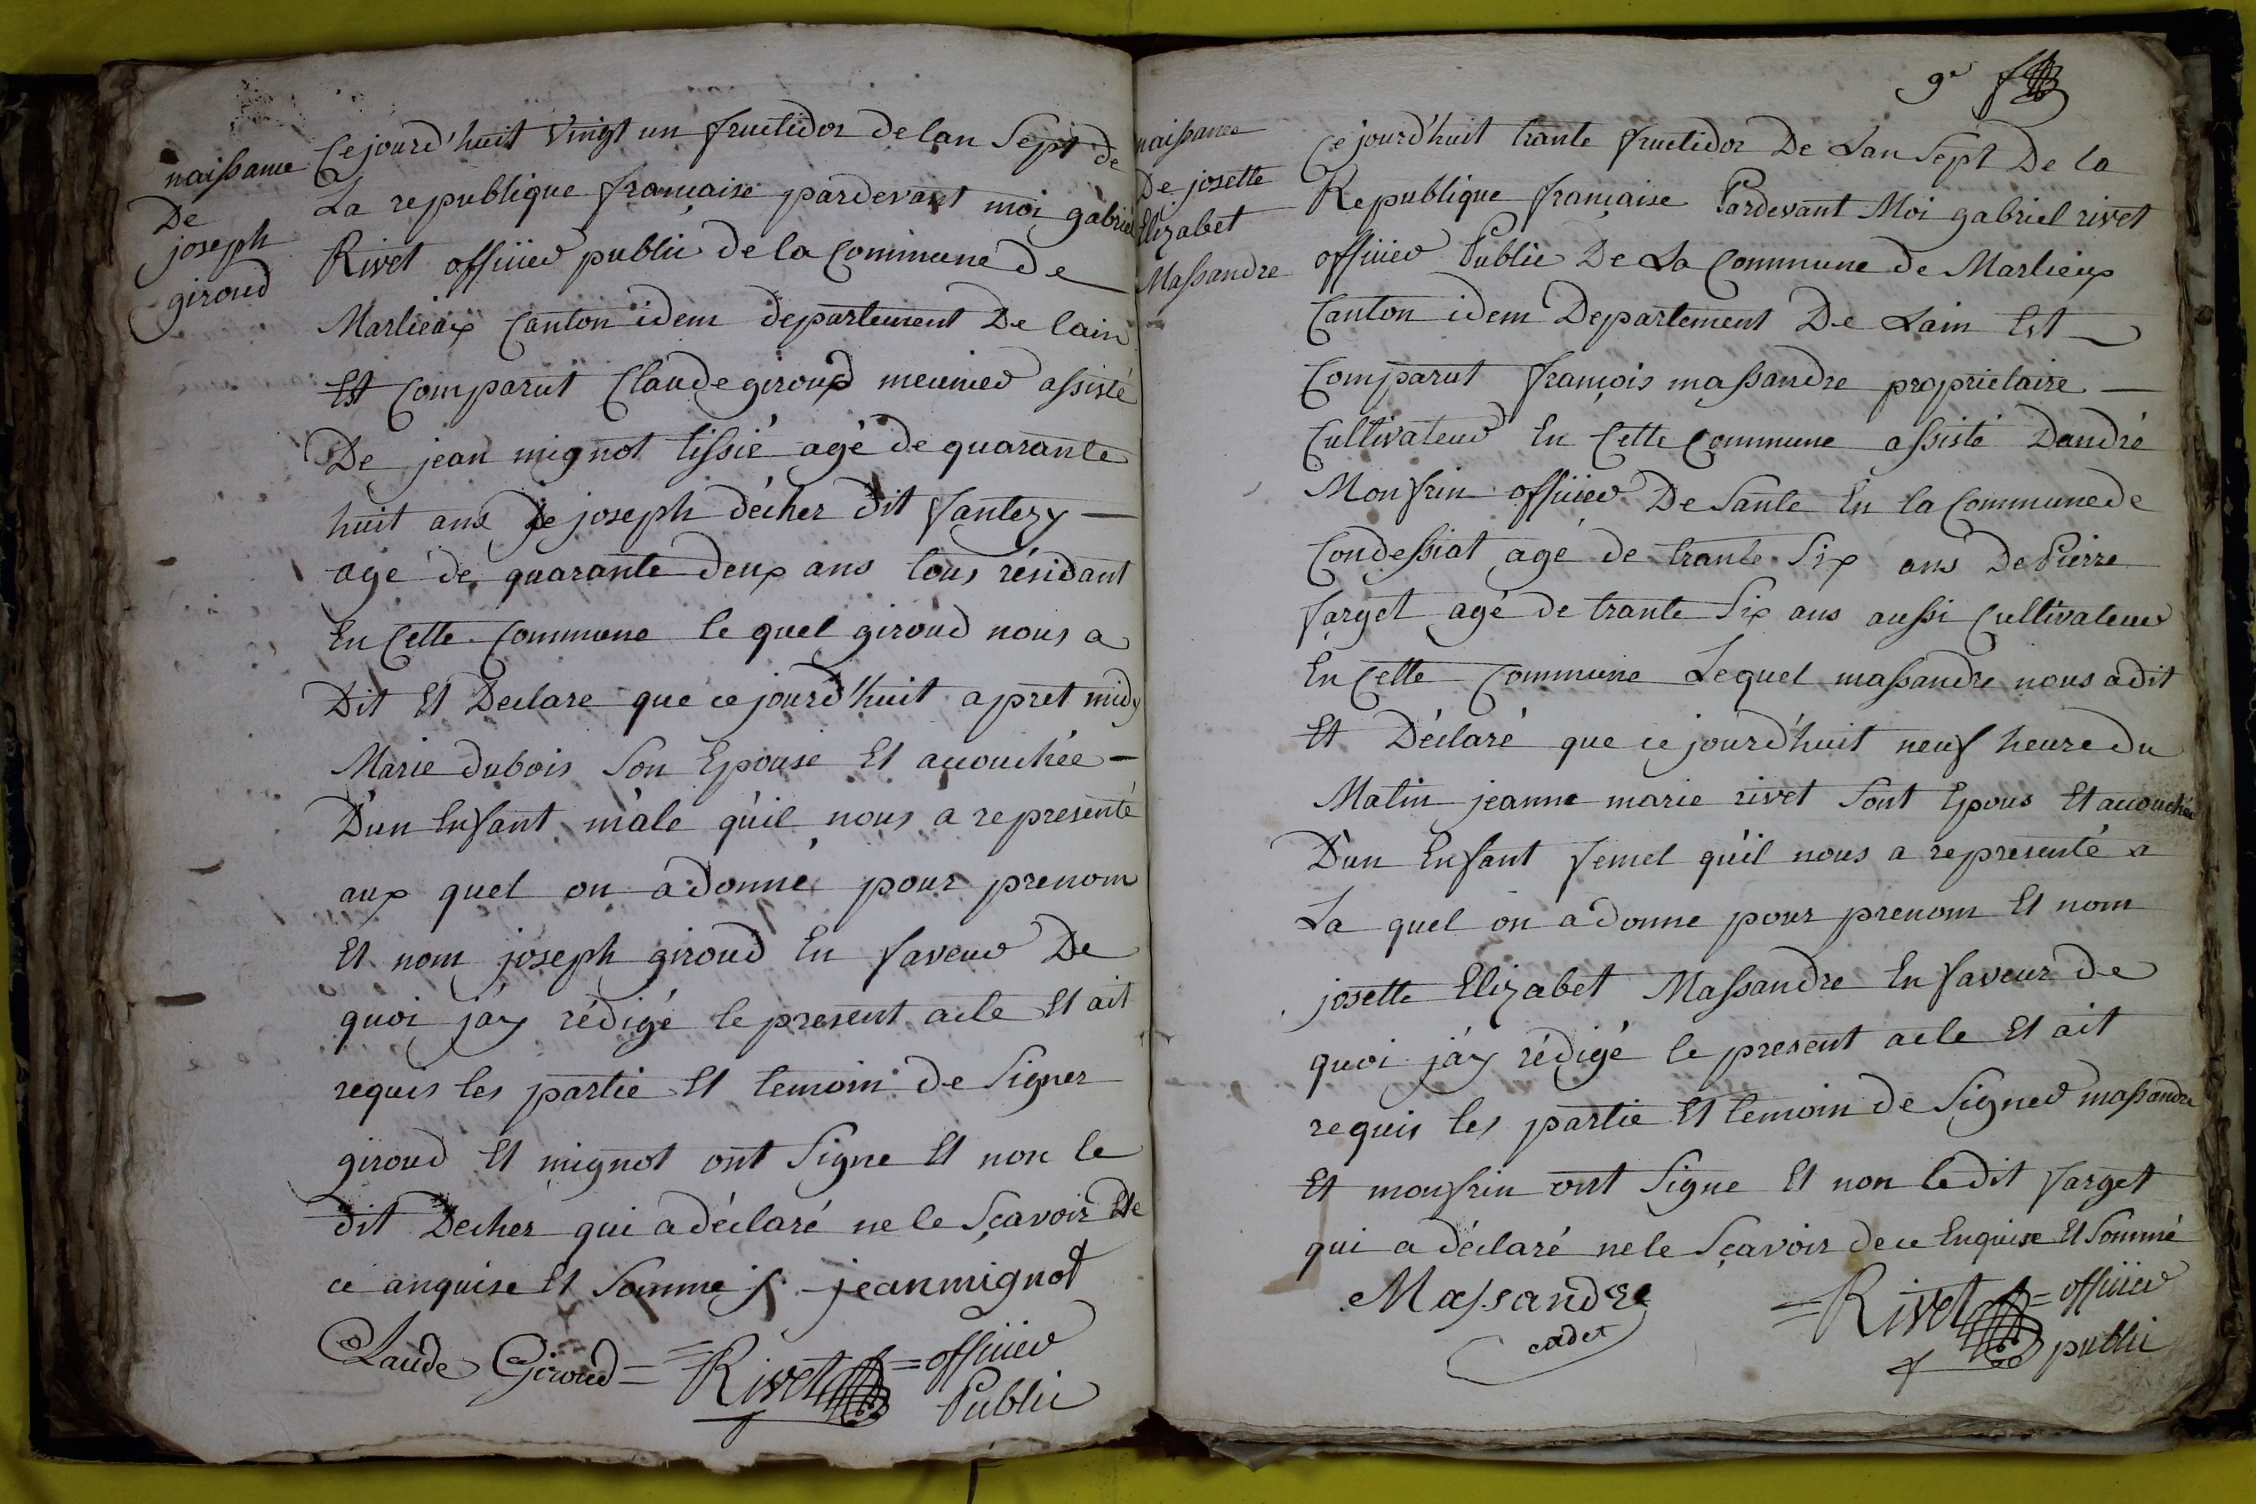 naissance
De
joseph
giroud
Cejourd'huit vingt un fructidor de lan Sept de
La republique française pardevant moi gabriel
Rivet officier public de la Commune de
Marlieux Canton idem departement De lain
Est Comparut Claude giroud meunier assisté
De jean mignot tissié agé de quarante
huit ans De joseph décher dit fantezy
agé de quarante deux ans tous résidant
En Cette Commune le quel giroud nous a
Dit Et Declare que cejourd'huit apret midy
Marie dubois Son Epouse Et acouchée
D'un Enfant mâle qu'il nous a representé
aux quel on a donné pour prenom
Et nom joseph giroud En faveur De
quoi j'ay rédigé le present acte Et ait
requis les partie Et temoin de Signer
giroud Et mignot ont Signe Et non le
dit Decher qui a déclaré ne le Sçavoir De
ce anquise Et Somme jeanmignot
Claude Giroud = Rivet = officier
Public
9e
naissance
De josette
Elizabet
Massandre
Cejourd'huit trante fructidor De Lan Sept De la
Republique française Pardevant Moi gabriel rivet
officier Public De La Commune de Marlieux
Canton idem Departement De Lain Est
Comparut françois massandre proprietaire
Cultivateur En Cette Commune assisté Dandré
Monfrin officier De Sante En la Commune de
Condessiat agé de trante Six ans De Pierre
farget agé de trante Six ans aussi Cultivateur
En Cette Commune Lequel massandre nous a dit
Et Déclaré que cejourd'huit neuf heure du
Matin jeanne marie rivet Sont Epous Et acouchée
D'un Enfant femel qu'il nous a representé a
La quel on a donne pour prenom Et nom
josette Elizabet Massandre En faveur de
quoi j'ay rédigé le present acte Et ait
requis les partie Et temoin de Signer massandre
Et monfrin ont Signe Et non le dit farget
qui a déclaré ne le Sçavoir de ce Enquise Et Sommé
Massandre = Rivet = officier
cadet public